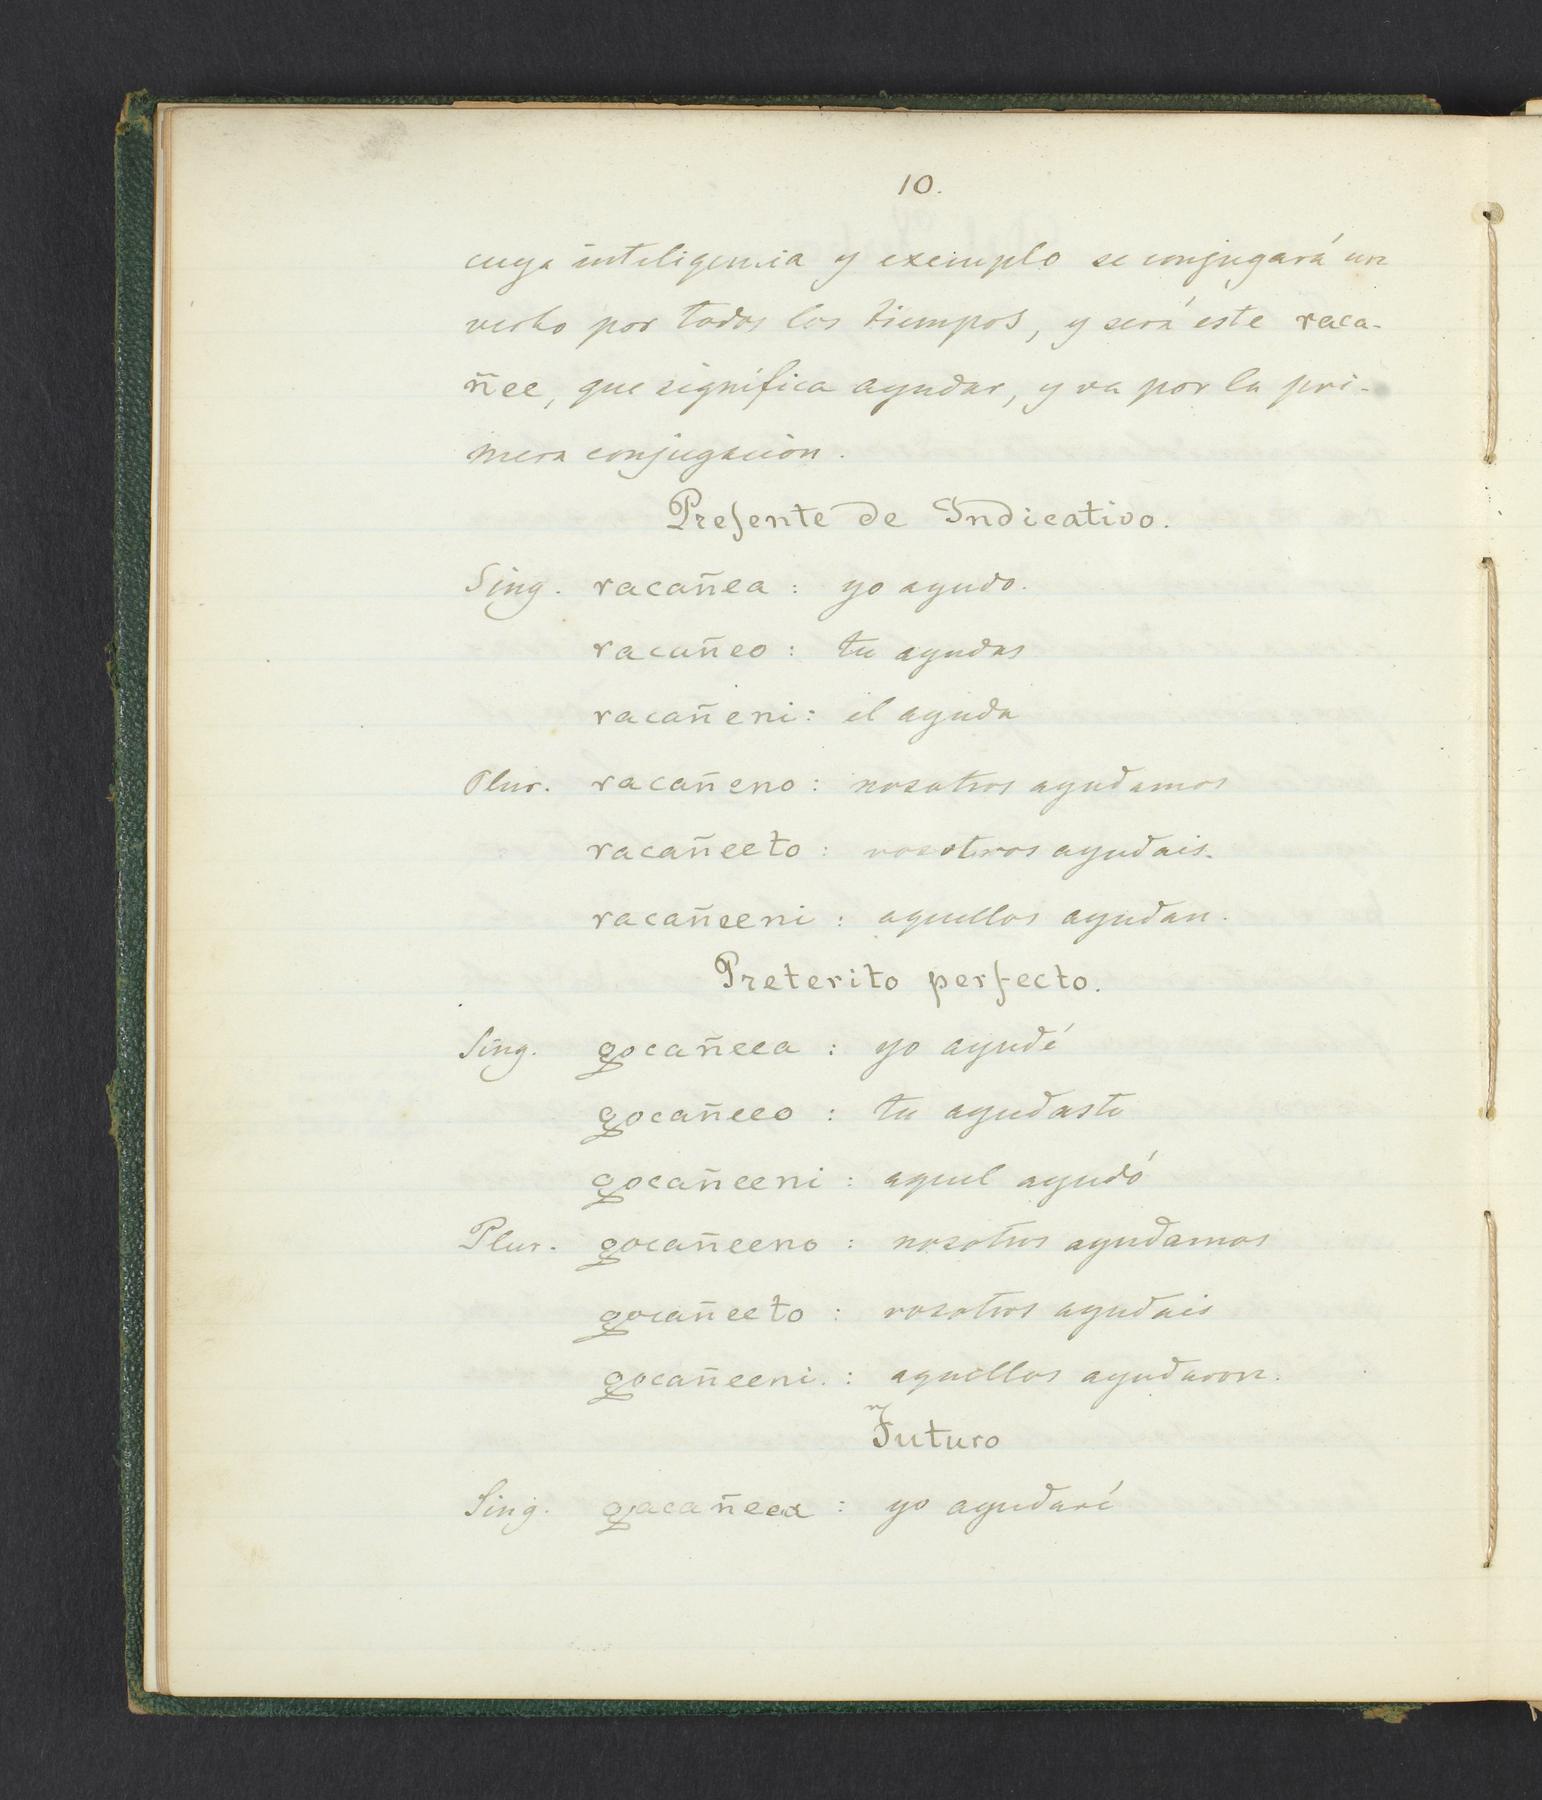 10.
cuya inteligencia y exemplo se conjugará un
verbo por todos los tiempos, y será este raca-
ñee, que significa ayudar, y va por la pri-
mera conjugación.
Presente de Indicativo.
Sing. racañea : yo ayudo.
racañeo : tu ayudas
racañeni : el ayuda
Plur. racañeno : nosotros ayudamos
racañeeto : vosotros ayudais.
racañeeni : aquellos ayudan.
Preterito perfecto.
Sing. gocañeea : yo ayudé
gocañeeo : tu ayudaste
gocañeeni : aquel ayudó
Plur. gocañeeno : nosotros ayudamos
gocañeeto : vosotros ayudais
gocañeeni. : aquellos ayudaron.
Futuro
Sing. gacañeea : yo ayudaré